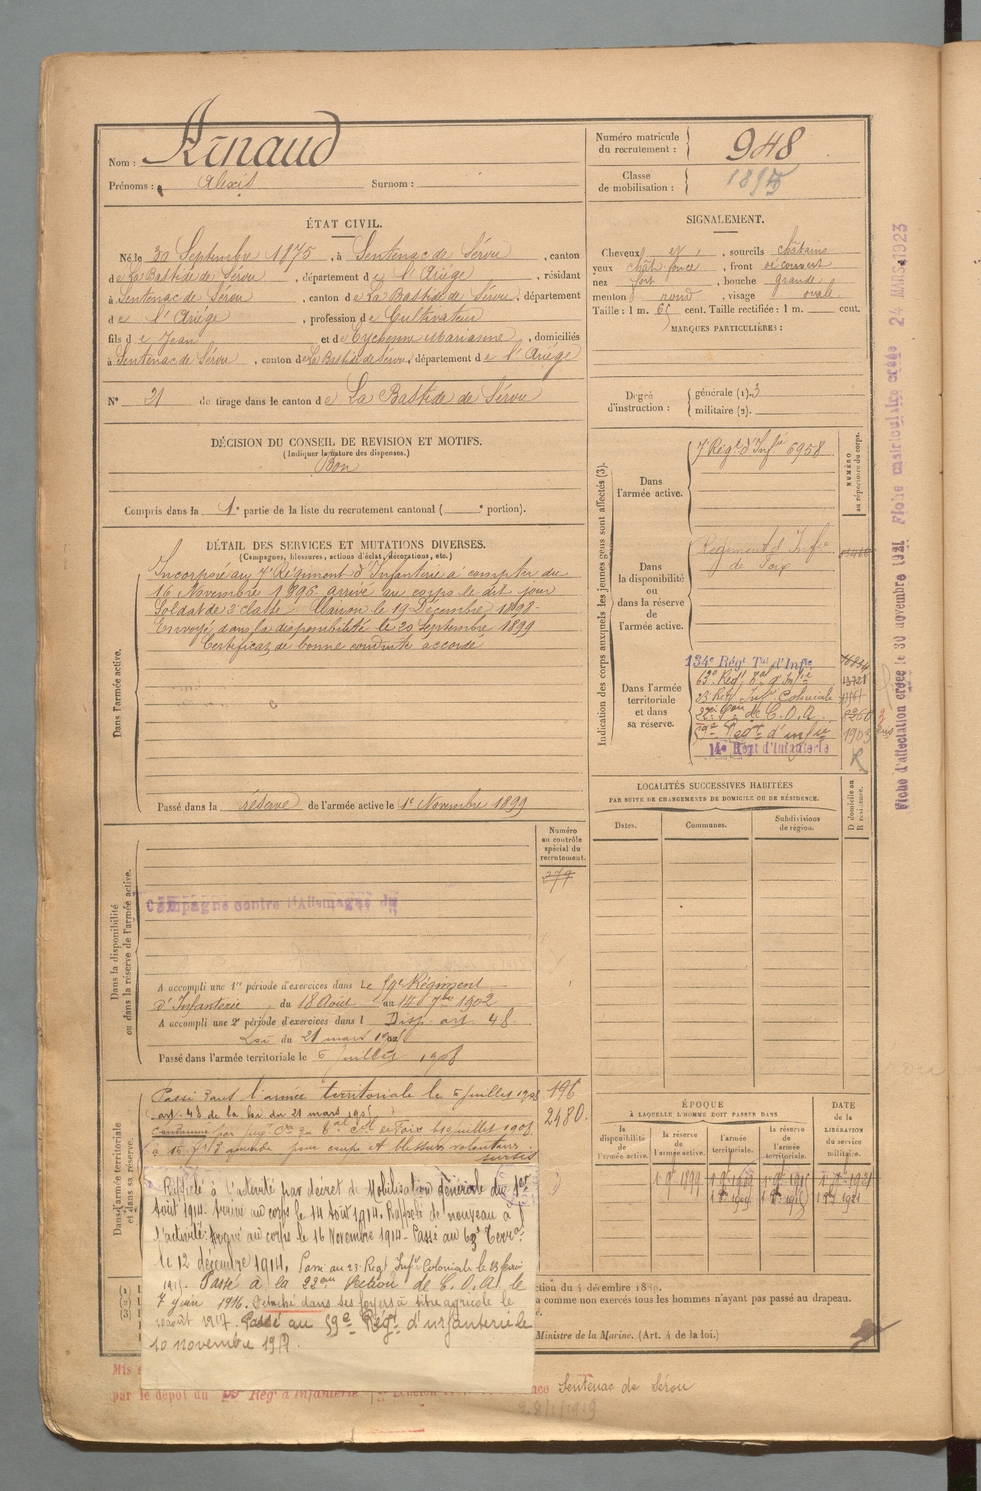 Nom : Arnaud
Prénoms : Alexis Surnom :
Numéro matricule du recrutement : 948
Classe de mobilisation : 1895
ÉTAT CIVIL.
Né le 30 Septembre 1875, à Sentenac de Sérou, canton
de La Bastide de Sérou, département de l'Ariège, résidant
à Sentenac de Sérou, canton de La Bastide de Sérou, département
de l'Ariège, profession de Cultivateur
fils de Jean et de Eychenne Marianne, domiciliés
à Sentenac de Sérou, canton de La Bastide de Sérou, département de l'Ariège
N° 21 de tirage dans le canton de La Bastide de Sérou
SIGNALEMENT.
Cheveux et, sourcils châtains
yeux chât foncé, front découvert
nez fort, bouche grande
menton rond, visage oval
Taille : 1 m. 65 cent. Taille rectifiée : 1 m. cent.
MARQUES PARTICULIÈRES :
Degré d'instruction : générale (1). 3
militaire (2).
DÉCISION DU CONSEIL DE REVISION ET MOTIFS.
(Indiquer la nature des dispenses.)
Bon
Compris dans la 1e partie de la liste du recrutement cantonal ( e portion).
DÉTAIL DES SERVICES ET MUTATIONS DIVERSES.
(Campagnes, blessures, actions d'éclat, décorations, etc.)
Dans l'armée active.
Incorporé au 7e Régiment d'Infanterie à compter du
16 Novembre 1896. arrivé au corps le dit jour
Soldat de 2e classe. Clairon le 19 Décembre 1898.
Envoyé dans la disponibilité le 20 Septembre 1899
Certificat de bonne conduite accordé
Passé dans la réserve de l'armée active le 1er Novembre 1899
Indication des corps auxquels les jeunes gens sont affectés (3).
NUMÉRO au répertoire du corps.
Dans l'armée active.
7e Régt d'Infie 6958
Dans la disponibilité ou dans la réserve de l'armée active.
Régiment d'Infie
de Foix
Dans l'armée territoriale et dans sa réserve.
134e Régt Tal d'Infie
63e Régt Tal d'Infie
23e Reg Infie Coloniale
22e Son de C.O.A. 5260
59e Regt d'infie 1903
14e Régt d'Infanterie
Fiche d'affectation créée le 30 novembre 1921 Fiche matriculaire créée 24 MARS 1923
LOCALITÉS SUCCESSIVES HABITÉES
PAR SUITE DE CHANGEMENTS DE DOMICILE OU DE RÉSIDENCE.
D domicile ou R résidence.
Dates. Communes. Subdivisions de région.
Dans la disponibilité ou dans la réserve de l'armée active.
Numéro au contrôle spécial du recrutement.
277
Campagne contre l'Allemagne du
A accompli une 1re période d'exercices dans le 59e Régiment
d'Infanterie du 18 Août au 14 7bre 1902
A accompli une 2e période d'exercices dans l Disp. art. 48
Loi du 21 mars 1905
Passé dans l'armée territoriale le 5 Juillet 1908
Dans l'armée territoriale et dans sa réserve.
Passé dans l'armée territoriale le 5 Juillet 1908 196
art. 48 de la loi du 21 mars 1905 2480
sursis
Rappelé à l'activité par décret de Mobilisation générale du 1er
Août 1914. Arrivé au corps le 14 Août 1914. Rappelé de nouveau à
l'activité. Arrivé au corps le 16 Novembre 1914. Passé au 63e Terral
le 12 décembre 1914. Passé au 23e Regt Infie Coloniale le
Passé à la 22eme Section de C.O.A. le
7 juin 1916. Détaché dans ses foyers à titre agricole le
août 1917. Passé au 59e Régt d'infanterie le
10 novembre 1917.
ÉPOQUE
À LAQUELLE L'HOMME DOIT PASSER DANS
DATE de la LIBÉRATION du service militaire.
la disponibilité de l'armée active.
la réserve de l'armée active.
l'armée territoriale.
la réserve de l'armée territoriale.
1 9bre 1899
1 8bre 1909
ction du 4 décembre 1889.
a comme non exercés tous les hommes n'ayant pas passé au drapeau.
Ministre de la Marine. (Art. 4 de la loi.)
par le dépôt du 59 Rég d'Infanterie Sentenac de Sérou